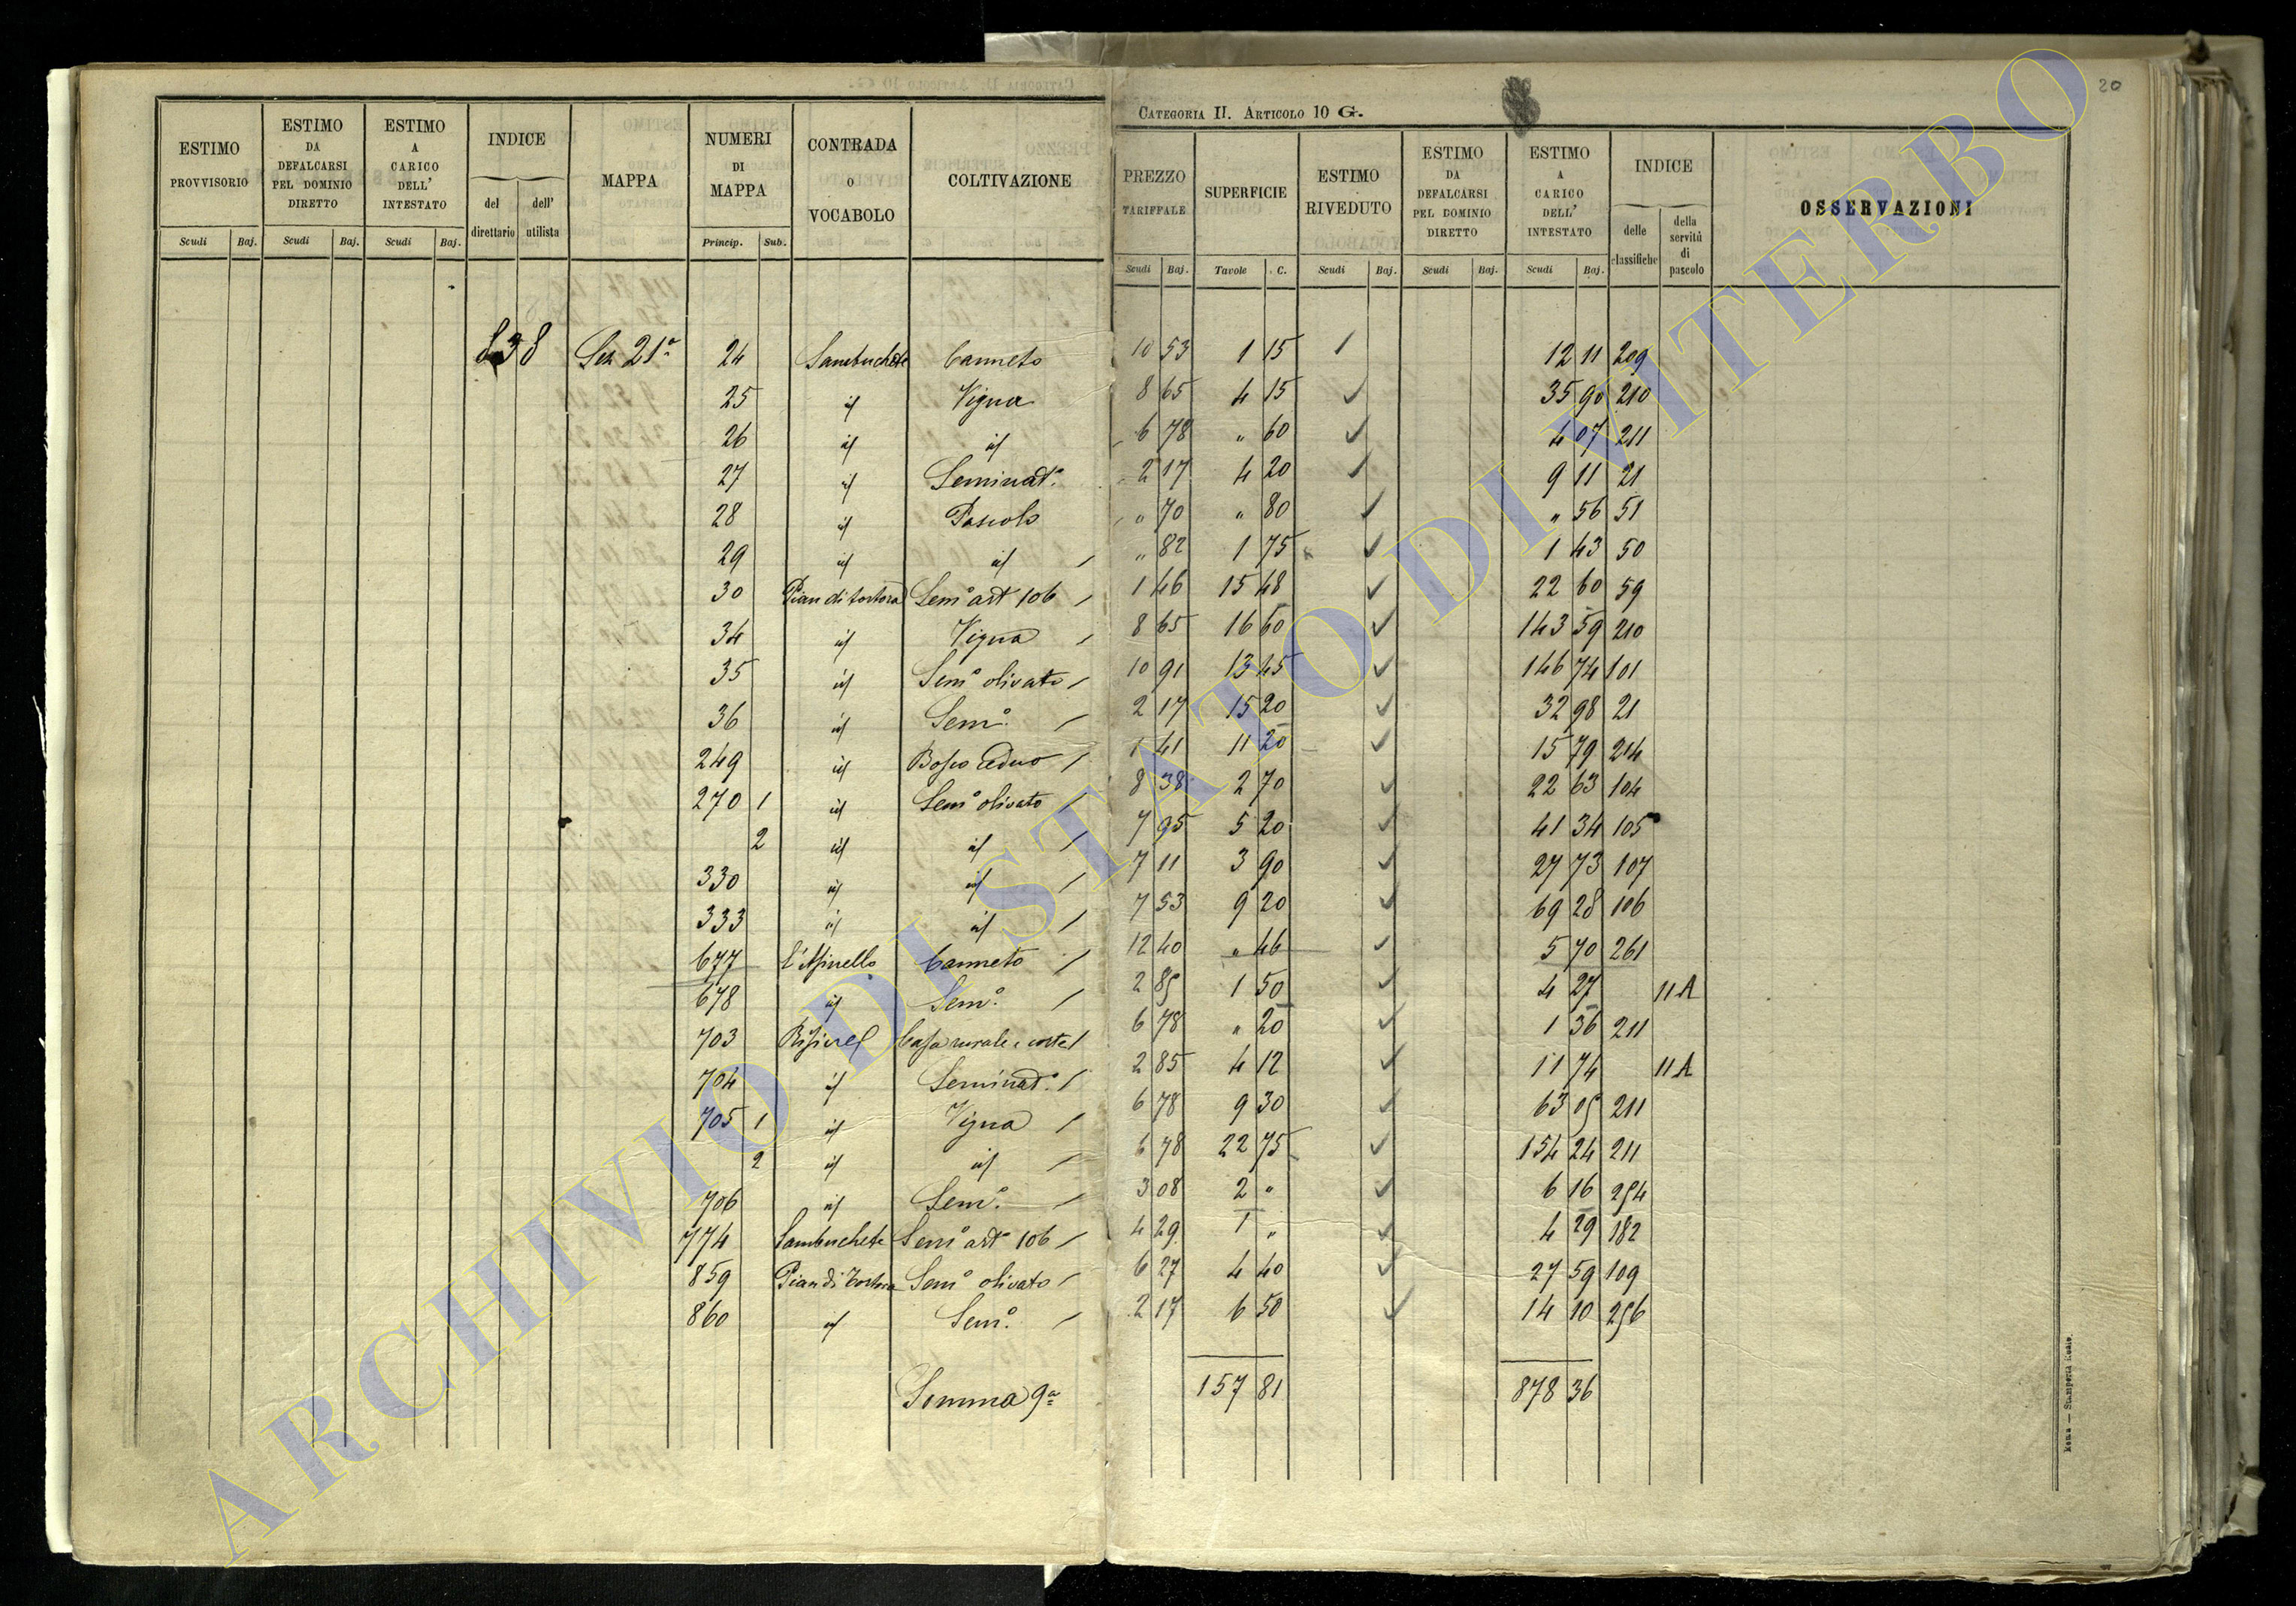 20
CATEGORIA II. ARTICOLO 10 G.
ESTIMO PROVVISORIO
ESTIMO DA DEFALCARSI PEL DOMINIO DIRETTO
ESTIMO A CARICO DELL' INTESTATO
INDICE
del direttario
dell' utilista
MAPPA
NUMERI DI MAPPA
CONTRADA O VOCABOLO
COLTIVAZIONE
PREZZO TARIFFALE
SUPERFICIE
ESTIMO RIVEDUTO
ESTIMO DA DEFALCARSI PEL DOMINIO DIRETTO
ESTIMO A CARICO DELL' INTESTATO
INDICE
delle classifiche
della servitù di pascolo
OSSERVAZIONI
Scudi Baj. Scudi Baj. Scudi Baj. Princip. Sub. Scudi Baj. Tavole C. Scudi Baj. Scudi Baj. Scudi Baj.
38 Sez 21ª 24 Sambuchete Canneto 10 53 1 15 12 11 209
25 id Vigna 8 65 4 15 35 90 210
26 id id 6 78 " 60 4 07 211
27 id Seminatº 2 17 4 20 9 11 21
28 id Pascolo " 70 " 80 " 56 51
29 id id " 82 1 75 1 43 50
30 Pian di tortora Semº artº 106 1 46 15 48 22 60 59
34 id Vigna 8 65 16 60 143 59 210
35 id Semº olivato 10 91 13 45 146 74 101
36 id Semº 2 17 15 20 32 98 21
249 id Bosco ceduo 1 41 11 20 15 79 214
270 1 id Semº olivato 8 38 2 70 22 63 104
2 id id 7 95 5 20 41 34 105
330 id id 7 11 3 90 27 73 107
333 id id 7 53 9 20 69 28 106
677 L'Asinello Canneto 12 40 " 46 5 70 261
678 id Semº 2 85 1 50 4 27 11 A
703 id Casa rurale e corte 6 78 " 20 1 36 211
704 id Seminatº 2 85 4 12 11 74 11 A
705 1 id Vigna 6 78 9 30 63 05 211
2 id id 6 78 22 75 154 24 211
706 id Semº 3 08 2 " 6 16 254
774 Sambuchete Semº artº 106 4 29 1 " 4 29 182
859 Pian di tortora Semº olivato 6 27 4 40 27 59 109
860 id Semº 2 17 6 50 14 10 256
Somma 9ª 157 81 878 36
Roma — Stamperia Reale.
ARCHIVIO DI STATO DI VITERBO